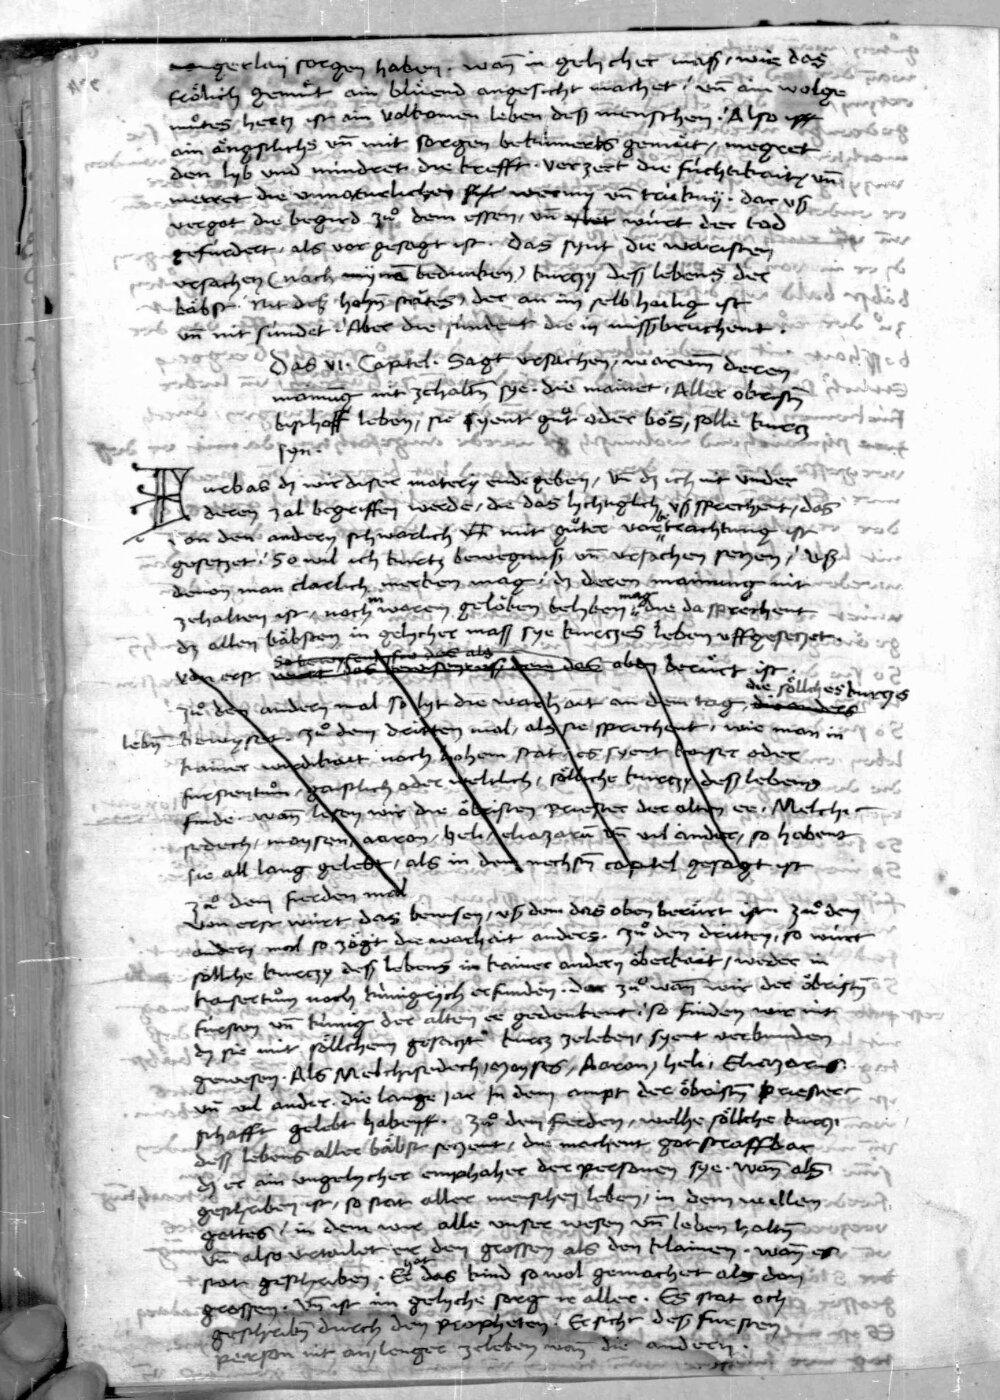 gerlai sorgen haben. wañ in gelycher mass, wie das
frölich gemüt ain blüend angesicht machet / vñ ain wolge
mutes hertz ist ain volkomen leben dess menschen / Also ist
ain ängstlichs vñ mit sorgen bekümerts gemüt, megret
den lyb vnd mindret die krefft. verzert die füchtikait, vñ
merret die vnnaturlichen
vergot die begird zů dem essen, vñ würt der tod
gefürdert, als vor gesagt ist. Das synt die waristen
vrsachen (nach bedunken) kurczy dess lebens der
bäbst. Nit dez hohñ states, der an im selb hailig ist
vñ nit sündet / Aber die sündent die in missbruchent.
Das VI. Capitel. Sagt vrsachen, warum deren
mainung nit zehaltñ sye. die mainet, Aller obristñ
bischoff leben, sie syent gůt oder bös, solle kurcz
syn.
Furbas dz wir diser matery ende geben, vñ dz ich nit vnder
deren zal begriffen werde, die das lychtiglich vssprechent, das
von den andern schwarlich vñ mit gůter vorbetrachtung ist
gesetzet / So wil ich kurtz bewegnuss vñ vrsachen setzen / vss
denen man clarlich merken mag / dz deren mainung nit
zehalten ist, noch in waren gelöben belyben mag die da sprechent
dz allen bäbsten in gelycher mass sye kurczes leben vffgesetzet.
Von erst würt das oben berürt ist.
zů den andern mal so lyt die warhait an dem tag, die söllches kurcys
lebñ bewyset. zů dem dritten mal, als sie sprechent, wie man in
kainer wirdikait noch hohem stat, es syent kaiser oder
fürstentům, gaistlich oder weltlich, söllche kurczy dess lebens
finde. wañ lesen wir die öbristen priester der alten ee. Melchi-
sedech, moysen, aaron, heli, eliazarū vñ vil ander, so habent
sie all lang gelebt, als in dem nechstñ capitel gesagt ist
zů dem fierden mal
Von erst würt das bewisen, vss dem das oben berürt ist. zů den
andern mal so zögt die warhait anders. zů den dritten, so würt
söllche kurczy dess lebens in kainer andern öberkait, weder in
kaisertům noch künigrych erfunden. zů wañ wir der öbristñ
fürsten vñ künig der alten ee gedenkent / so finden wir nit
dz sie mit söllchem gesaczt kurcz zeleben, syent verbunden
gewesen. Als Melchisedech, Moyses, Aaron, heli, Eliazarus.
vñ vil ander. die lange jar in dem ampt der öbristñ priester
schafft gelebt habent. Zů den fierden, welhe söllche kurczi
dess lebens aller bäbst setzent, die machent got straffbar
dz er ain vngelycher emphaher der personen sye. wañ als
geschriben ist, so stat aller menschen leben, in dem willen
gottes, in dem wir alle vnser wesen vñ leben haltñ
vñ also vrtailet er den grossen als den klainen. wañ es
stat geschriben. Er hat das kind so wol gemachet als den
grossen. vñ ist im gelyche sorg ir aller. Es stat och
geschribñ durch den propheten. Er sicht dess fürsten
person nit an, lenger zeleben wañ die andern.